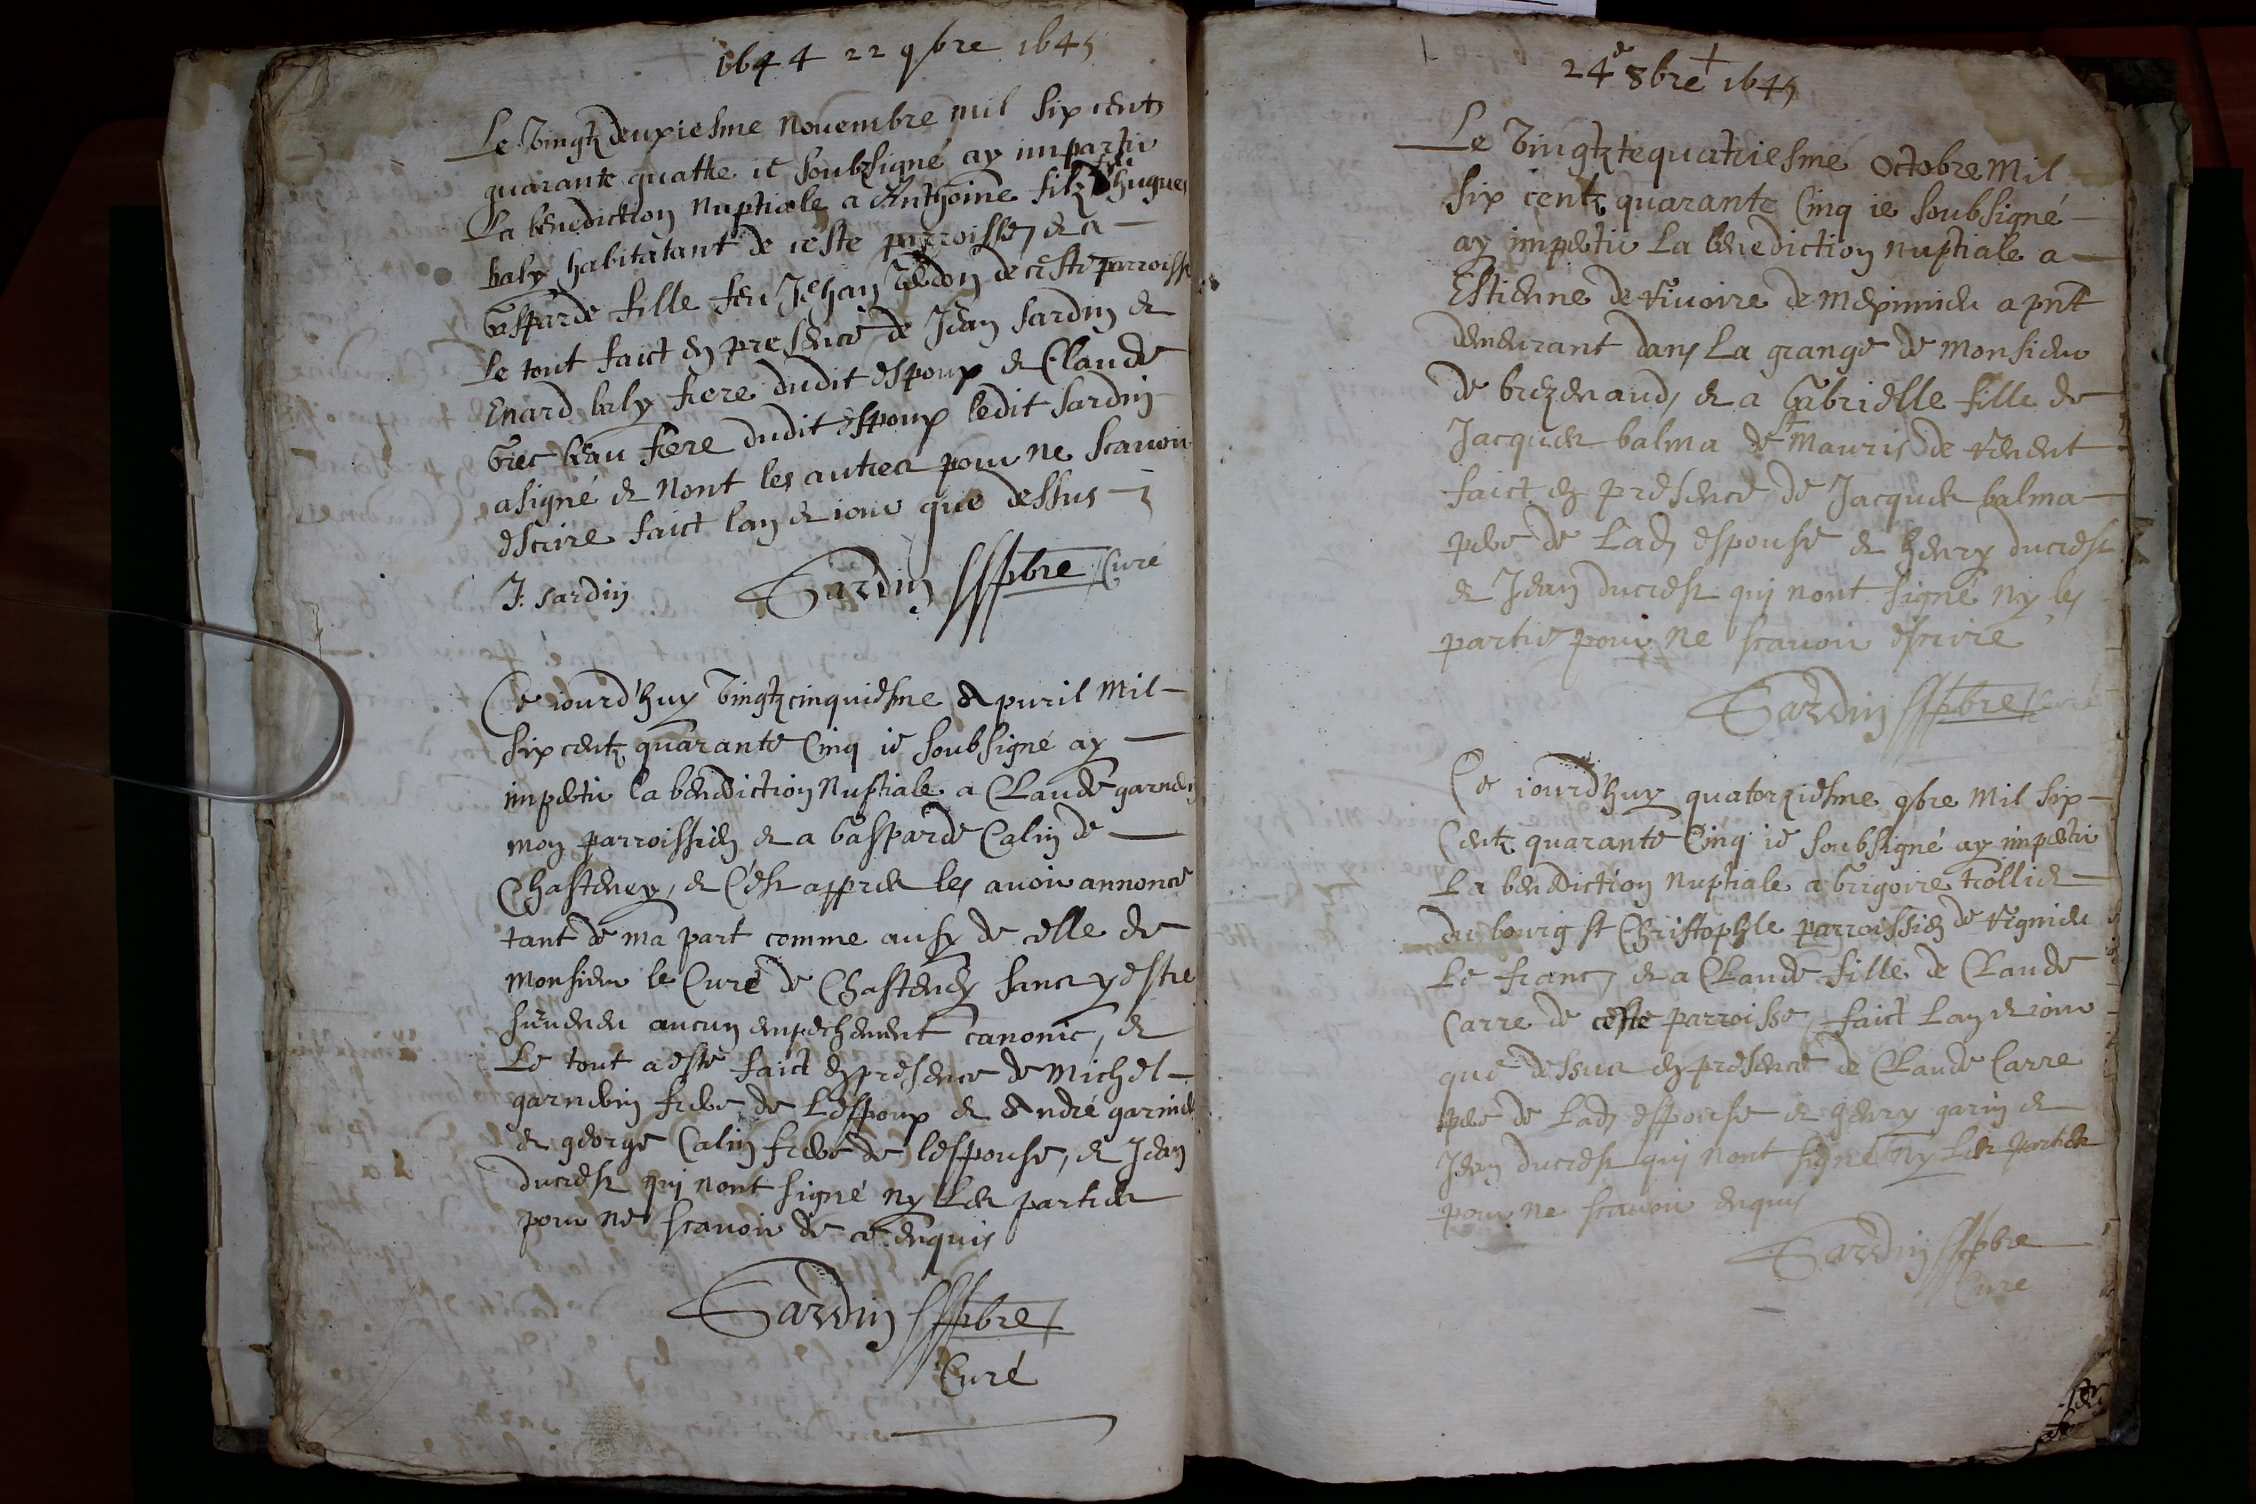 1644 22 9bre 1645
Le Vingtz deuxiesme Novembre mil six centz
quarante quattre ie soubzsigné ay imparty
La benediction Nuptiale a Anthoine filz hugues
baly habitatant de ceste parroisse, et a
Gasparde fille feu Jehan de ceste parroisse
Le tout faict en presence de Jean Sardin et
Enard baly frere dudit espoux et Claude
beau frere dudit espoux ledit Sardin
a signé et Nont les autres pour ne scavoir
escrire faict lan et iour que dessus
J. Sardin Sardin pbre Curé
Ce iourd'huy Vingtz cinquiesme Apvril Mil
six centz quarante Cinq ie soubsigné ay
imparti la benediction Nuptiale a Claude
mon parroissien et a Gasparde Calin de
Chasteney, et C'est appres les avoir annoncé
tant de ma part comme ausy de celle de
Monsieur le Curé de Chasteney sans y estre
survenu aucun empechement canonic, et
Le tout a esté faict en presence de Michel
frere de Lespoux et André
et george Calin frere de lespouse, et Jean
ducrest qui nont signé ny Les parties
pour ne scavoir de ce enquis
Sardin pbre
Curé
24e 8bre 1645
Le Vingtz te quatriesme Octobre Mil
six centz quarante Cinq ie soubsigné
ay imparti La benediction nuptiale a
Estienne de Rivoire de Meximieu a pnt
demeurant dans La grange de Monsieur
de brezenaud, et a Gabrielle fille de
Jacques balma de St Mauris de
faict en presence de Jacques balma
pere de Lad. espouse et henry ducrest
et Jean ducrest qui nont signé ny les
parties pour ne scavoir escrire
Sardin pbre Curé
Ce iourd'huy quatorziesme 9bre Mil six
Centz quarante Cinq ie soubsigné ay imparti
La benediction Nuptiale a Grigoire trollier
du bourg st Christophle parroissien de
Le franc, et a Claude fille de Claude
Carre de ceste parroisse, faict Lan et iour
que dessus en presence de Claude Carre
pere de Lad. espouse et henry garin et
Jean ducrest qui nont signé Ny Les parties
pour ne scavoir enquis
Sardin pbre
Curé